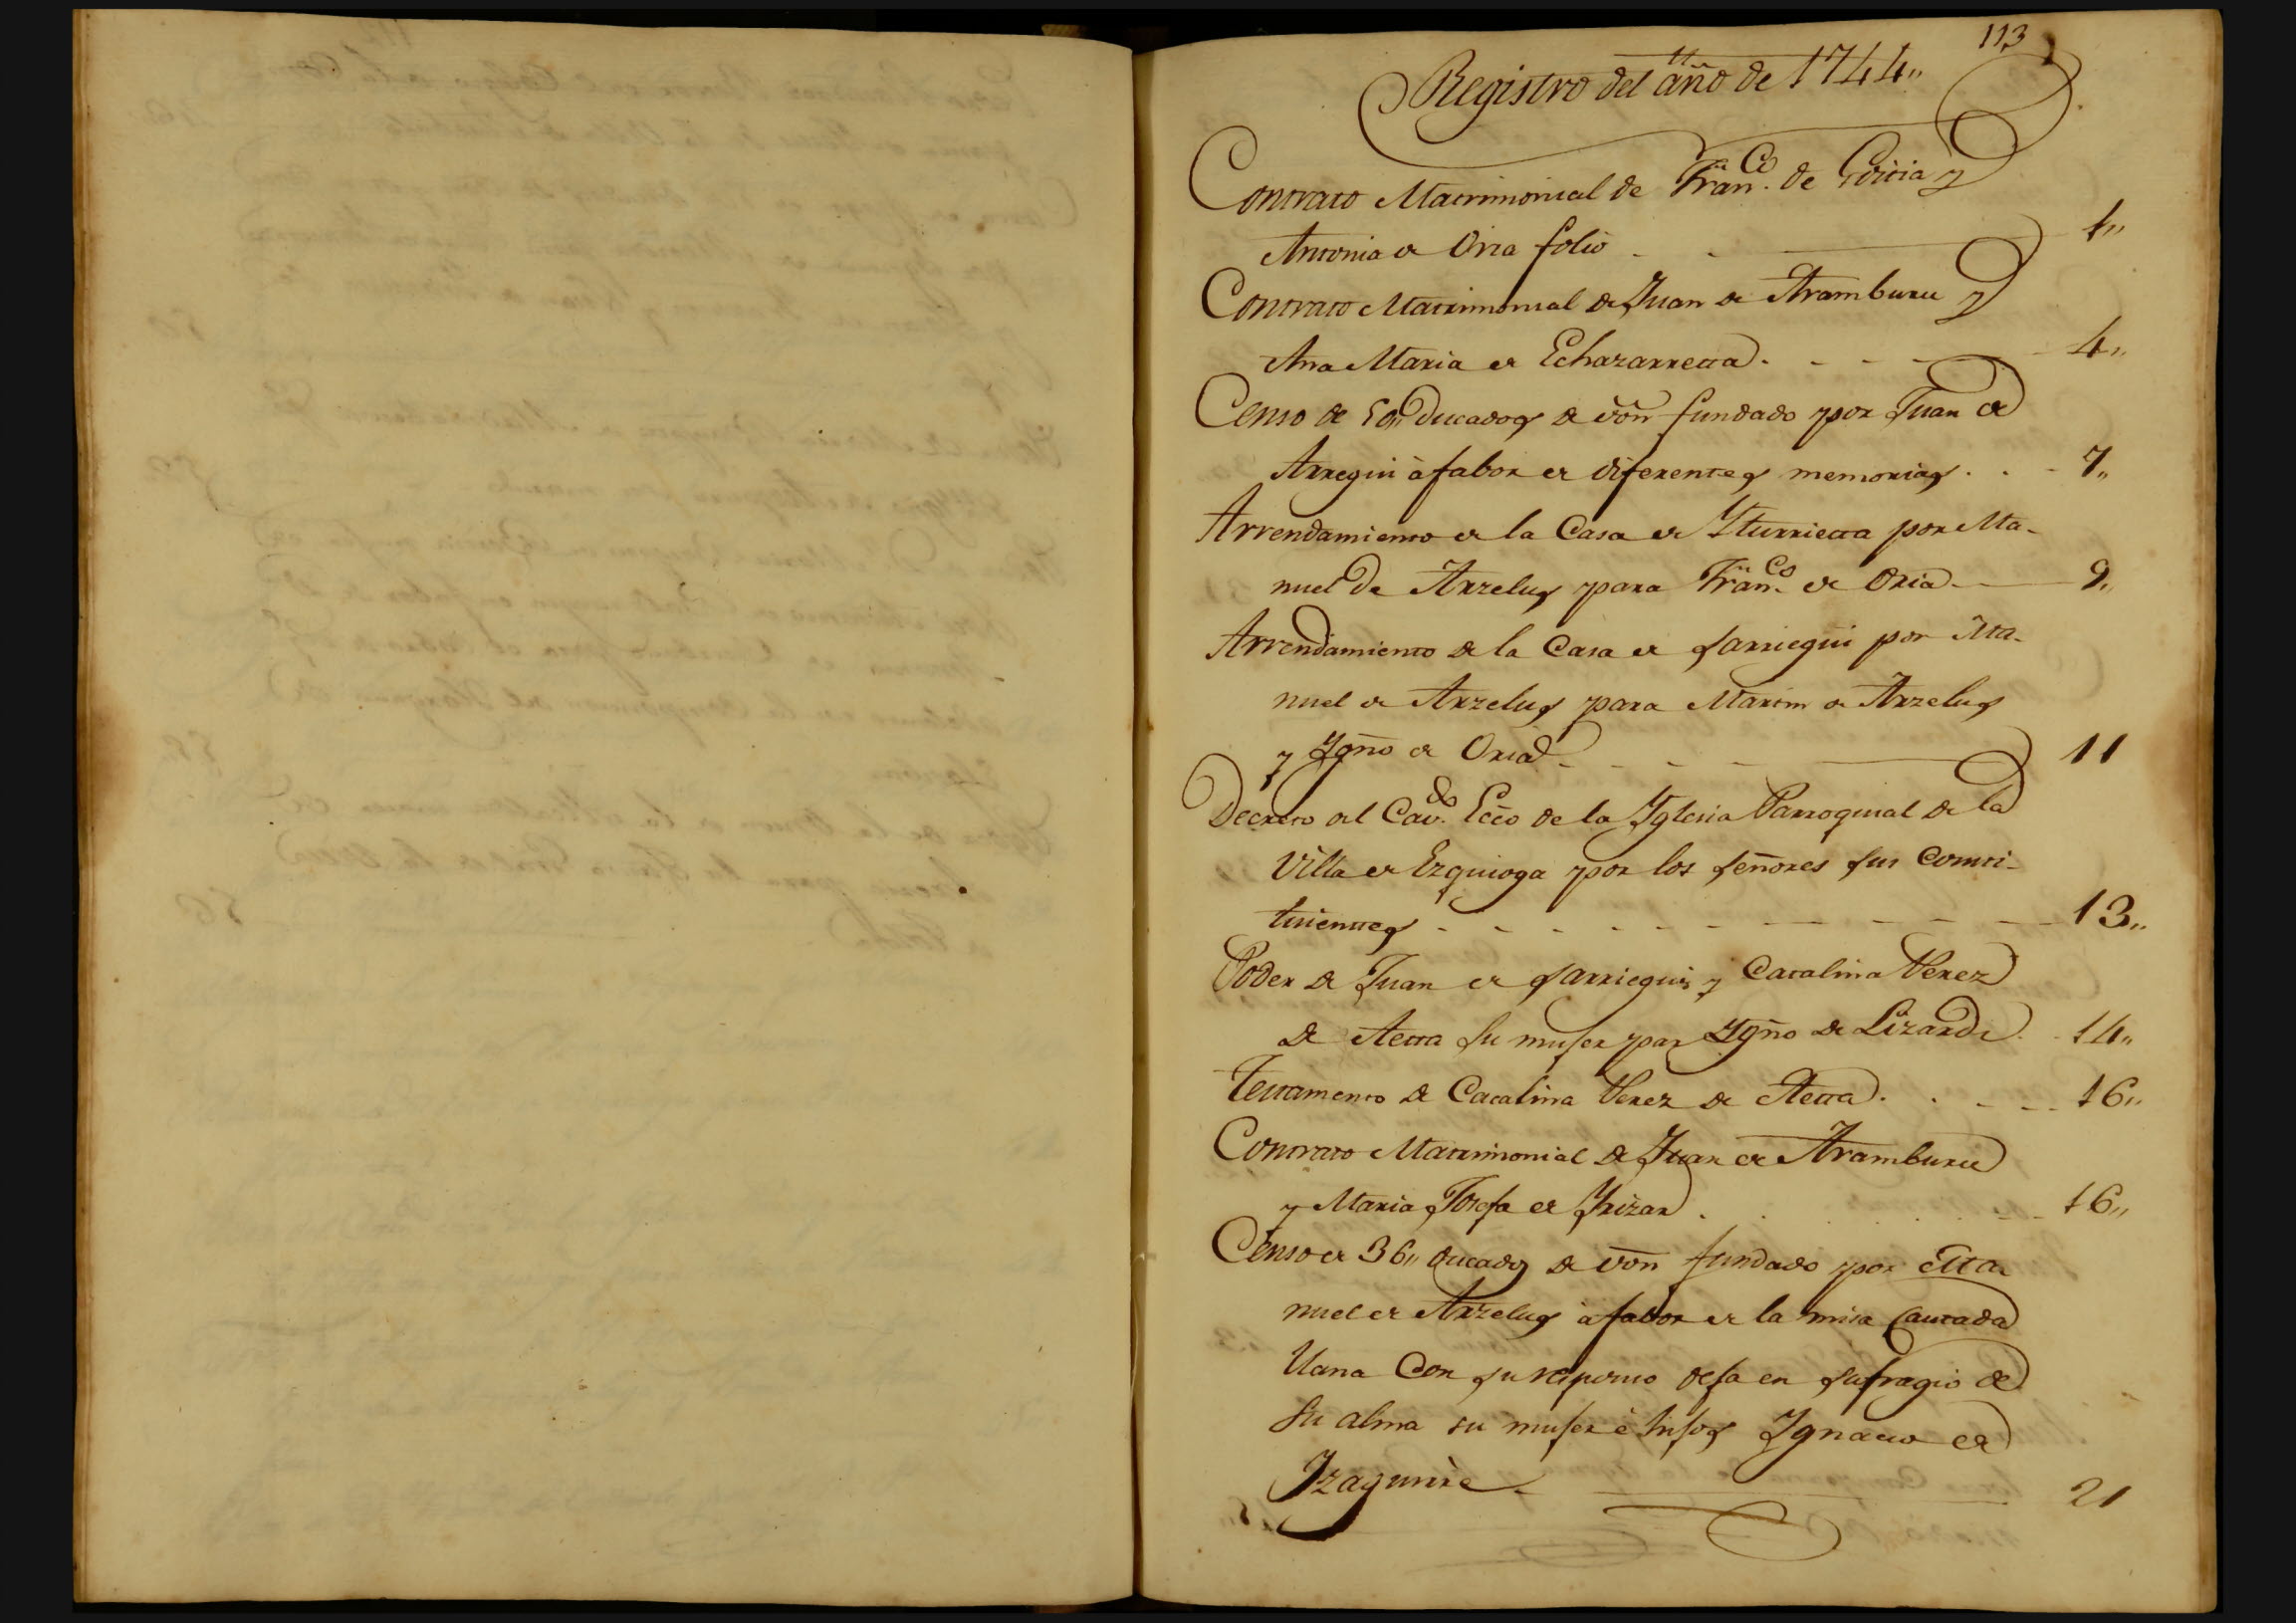 113
Registro del año de 1744,,
Contrato Matrimonial de Fran.co de y
Antonia de Oria folio - - 1,,
Contrato Matrimonial de Juan de Aramburu y
Ana Maria de Echazarreta. - - - 4,,
Censo de 50,, Ducados de von fundado por Juan de
Arregui à fabor de diferentes memorias . . - 7,,
Arrendamiento de la Casa de Yturrieta por Ma-
nuel de Arzelus para Fran.co de Oria - 9,,
Arrendamiento de la Casa de Sarriegui por Ma-
nuel de Arzelus para Martin de Arzelus
y Ygño de Oria - - - 11
Decreto del Cav.do Ecco de la Yglesia Parroquial de la
Villa de Ezquioga por los señores sus Consti-
tuientes - - - - - - 13,,
Poder de Juan de Sarriegui y Catalina Perez
de Aetta su muger par Ygño de Lizardi. - 14,,
Testamento de Catalina Perez de Aetta. . - - 16,,
Contrato Matrimonial de Juan de Aramburu
y Maria Josefa de Yrizar . . . . - 16,,
Censo de 36,, ducados de von fundado por Ma-
nuel de Arzelus à fabor de la misa Cantada
llana Con su responso deja en sufragio de
su alma su muger è hijos Ygnacio de
Yzaguirre - 21